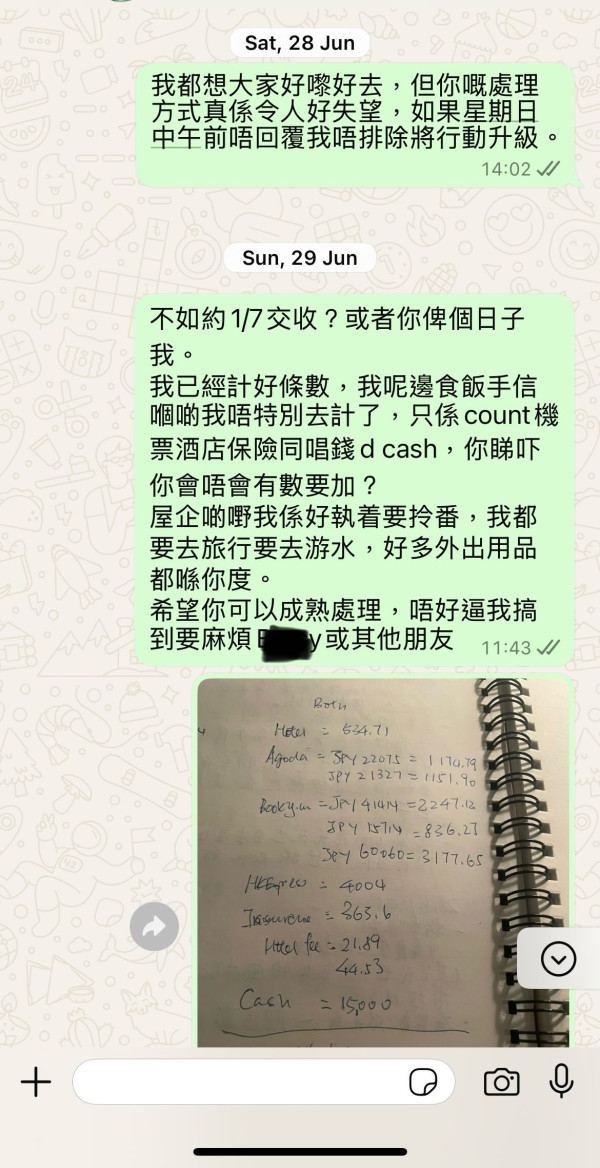 Sat, 28 Jun
我都想大家好嚟好去，但你嘅處理
方式真係令人好失望，如果星期日
中午前唔回覆我唔排除將行動升級。
14:02
Sun, 29 Jun
不如約1/7交收？或者你俾個日子
我。
我已經計好條數，我呢邊食飯手信
嗰啲我唔特別去計了，只係count機
票酒店保險同唱錢d cash，你睇吓
你會唔會有數要加？
屋企啲嘢我係好執着要拎番，我都
要去旅行要去游水，好多外出用品
都喺你度。
希望你可以成熟處理，唔好逼我搞
到要麻煩 y或其他朋友
11:43
Both
Hotel = 534.71
Agoda = JPY 22075 = 1174.79
JPY 21327 = 1151.90
= JPY 41414 = 2247.12
JPY 15714 = 836.27
JPY 60060 = 3177.65
HKExpress = 4004
Insurance = 363.6
Hotel fee = 21.89
44.53
Cash = 15,000